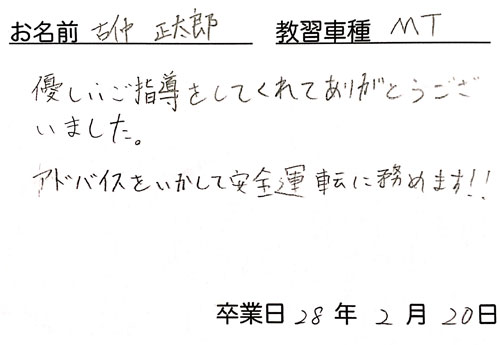 お名前 古仲 正太郎 教習車種 MT
優しいご指導をしてくれてありがとうござ
いました。
アドバイスをいかして安全運転に務めます!!
卒業日 28 年 2 月 20 日